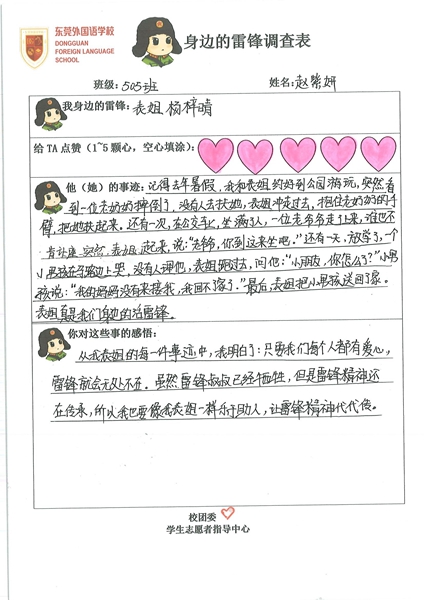 东莞外国语学校
DONGGUAN
FOREIGN LANGUAGE
SCHOOL
身边的雷锋调查表
班级:505班 姓名:赵紫妍
我身边的雷锋:表姐杨梓晴
给TA点赞(1~5颗心,空心填涂):
他(她)的事迹:记得去年暑假,我和表姐约好到公园游玩,突然看
到一位老奶奶摔倒了,没有人去扶她,表姐冲走过去,抱住老奶奶的手
臂,把她扶起来。还有一次,在公交车上,坐满了人,一位老爷爷走上来,谁也不
肯让座,突然,表姐起来,说:“老爷爷,你到这来坐吧。”还有一天,放学了,一个
小男孩在马路边上哭,没有人理他,表姐跑过去,问他:“小朋友,你怎么了?”小男
孩说:“我的妈妈没有来接我,我回不了家了。”最后,表姐把小男孩送回了家。
表姐真是我们身边的活雷锋。
你对这些事的感悟:
从我表姐的每一件事迹中,我明白了:只要我们每个人都有爱心,
雷锋就会无处不在。虽然雷锋叔叔已经牺牲,但是雷锋精神还
在传承,所以我也要像我表姐一样乐于助人,让雷锋精神代代传。
校团委
学生志愿者指导中心